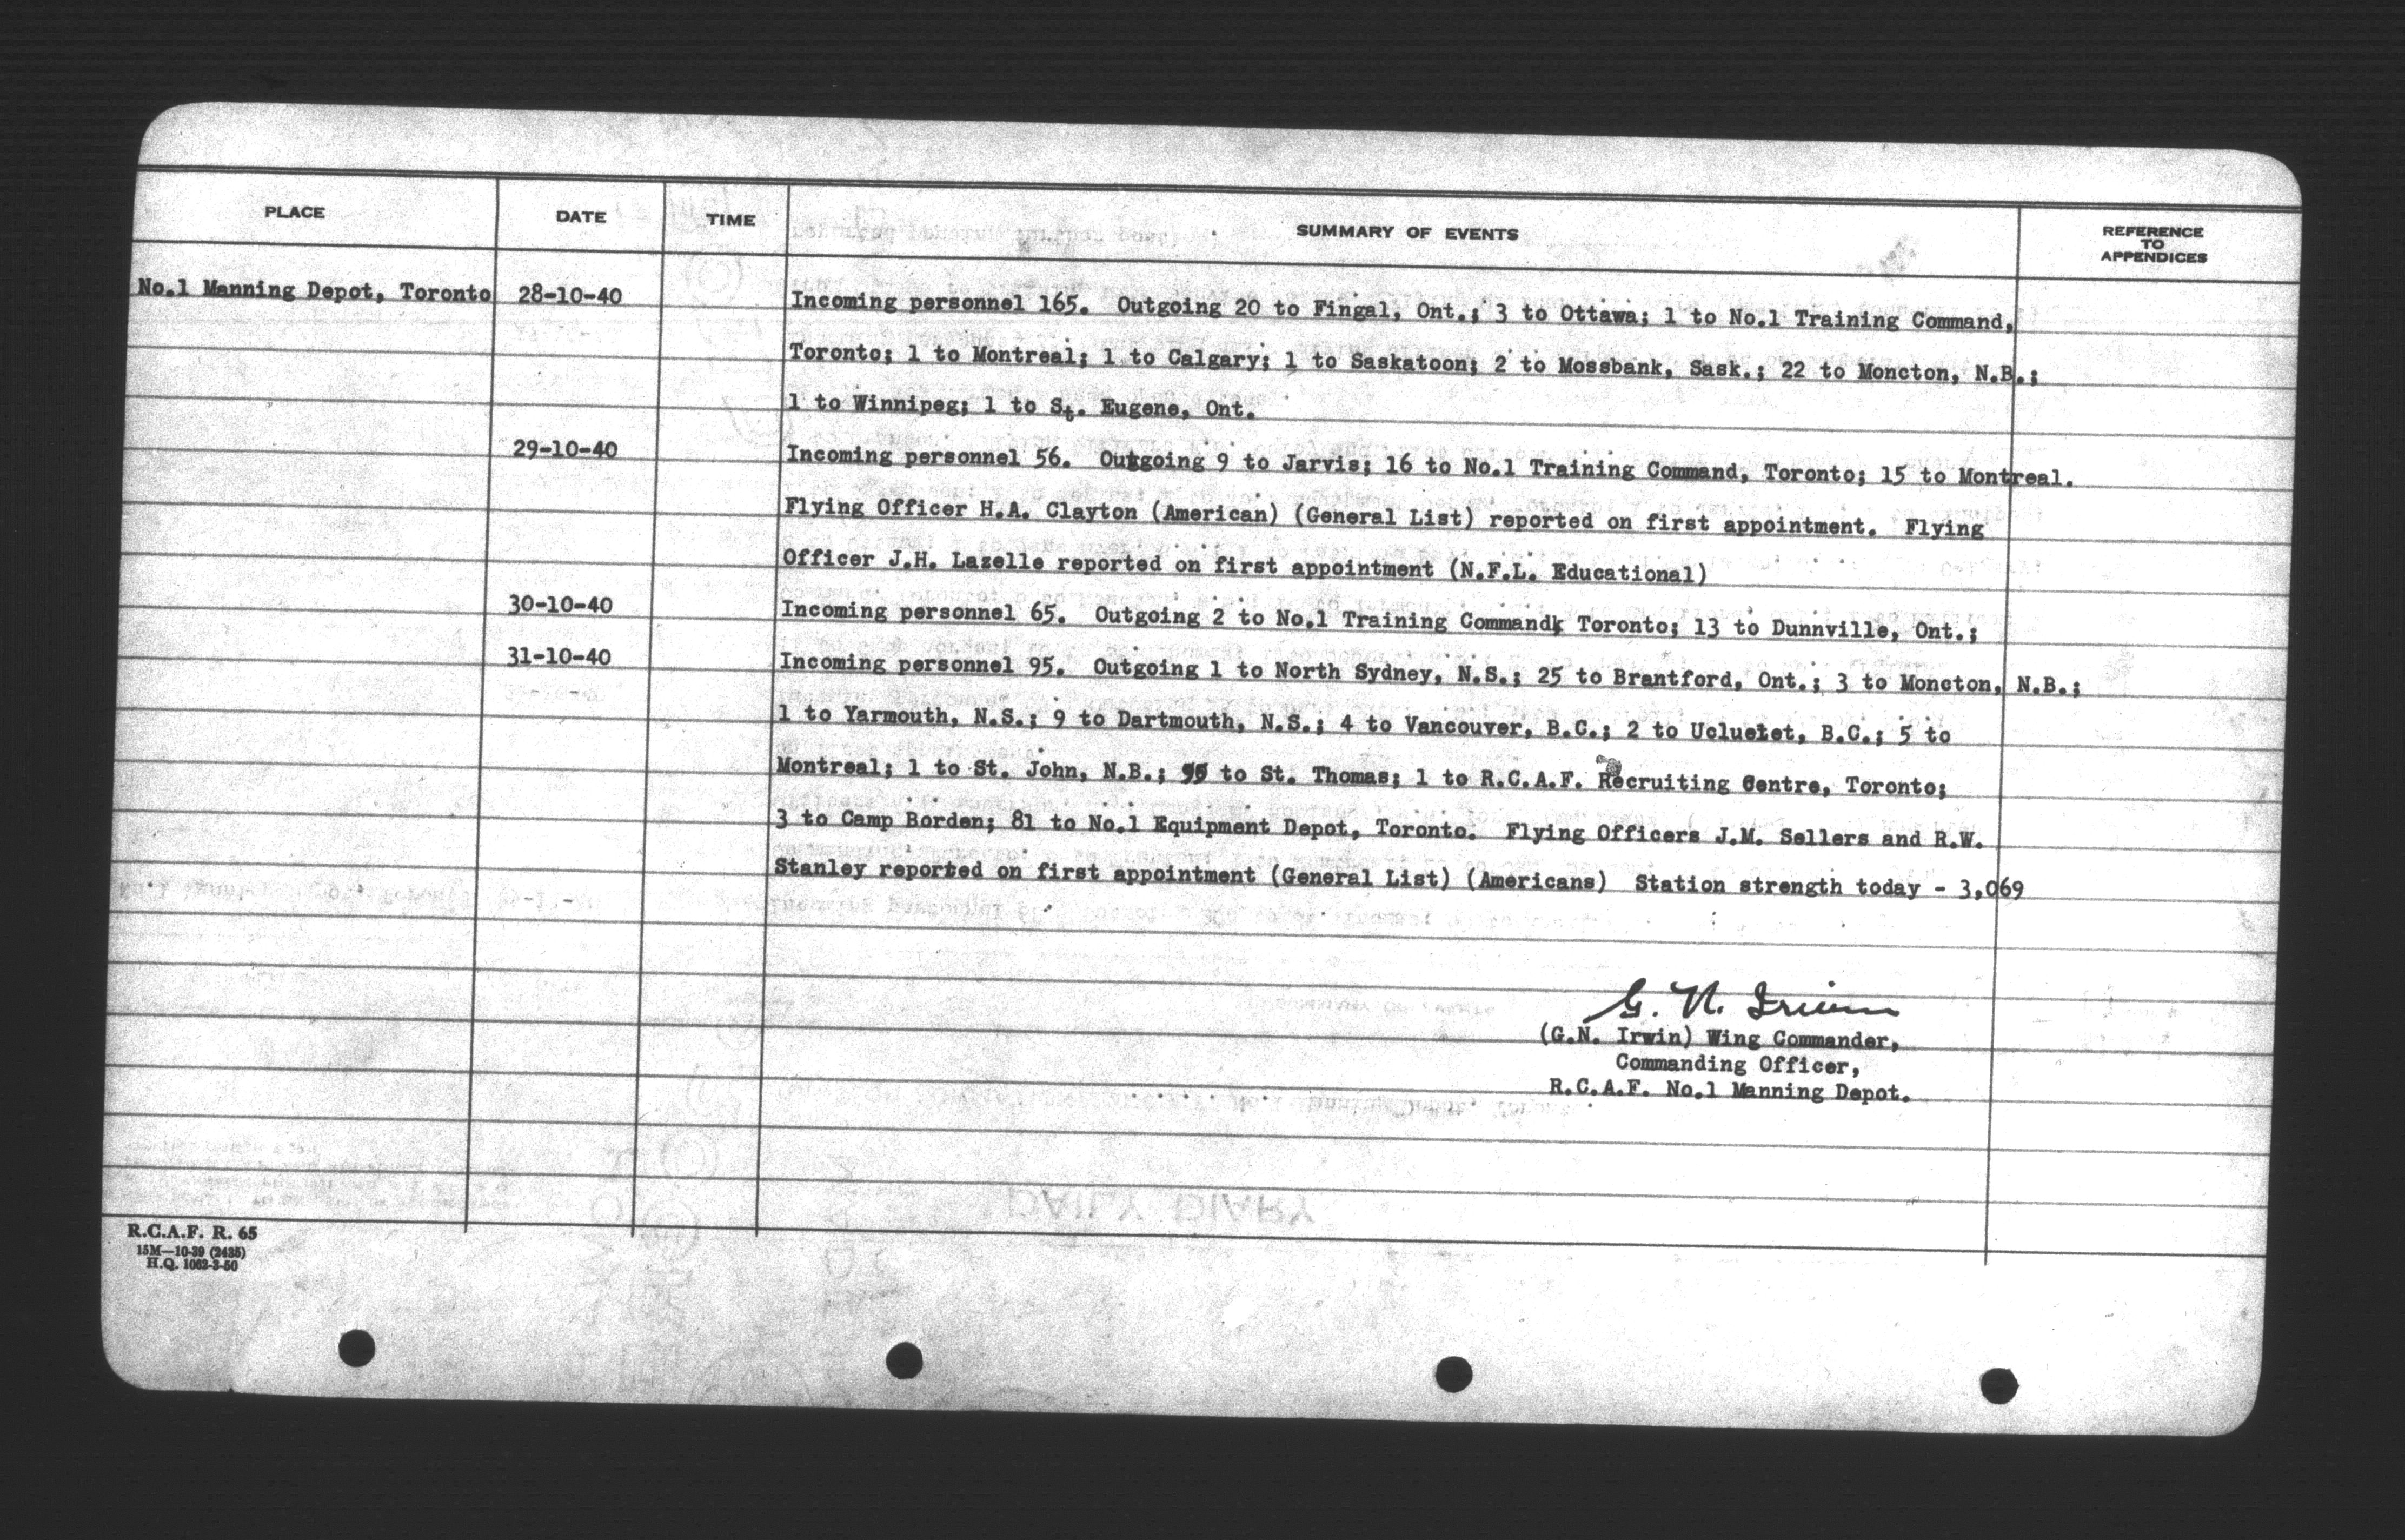 PLACE DATE TIME SUMMARY OF EVENTS REFERENCE TO APPENDICES
No.1 Manning Depot, Toronto 28-10-40 Incoming personnel 165. Outgoing 20 to Fingal, Ont.; 3 to Ottawa; 1 to No.1 Training Command,
Toronto; 1 to Montreal; 1 to Calgary; 1 to Saskatoon; 2 to Mossbank, Sask.; 22 to Moncton, N.B.;
1 to Winnipeg; 1 to St. Eugene, Ont.
29-10-40 Incoming personnel 56. Outgoing 9 to Jarvis; 16 to No.1 Training Command, Toronto; 15 to Montreal.
Flying Officer H.A. Clayton (American) (General List) reported on first appointment. Flying
Officer J.H. Lazelle reported on first appointment (N.F.L. Educational)
30-10-40 Incoming personnel 65. Outgoing 2 to No.1 Training Command, Toronto; 13 to Dunnville, Ont.;
31-10-40 Incoming personnel 95. Outgoing 1 to North Sydney, N.S.; 25 to Brantford, Ont.; 3 to Moncton, N.B.;
1 to Yarmouth, N.S.; 9 to Dartmouth, N.S.; 4 to Vancouver, B.C.; 2 to Ucluelet, B.C.; 5 to
Montreal; 1 to St. John, N.B.; to St. Thomas; 1 to R.C.A.F. Recruiting Centre, Toronto;
3 to Camp Borden; 81 to No.1 Equipment Depot, Toronto. Flying Officers J.M. Sellers and R.W.
Stanley reported on first appointment (General List) (Americans) Station strength today - 3,069
G. N. Irwin
(G.N. Irwin) Wing Commander,
Commanding Officer,
R.C.A.F. No.1 Manning Depot.
R.C.A.F. R. 65
15M—10-39 (2435)
H.Q. 1062-3-50
DAILY DIARY